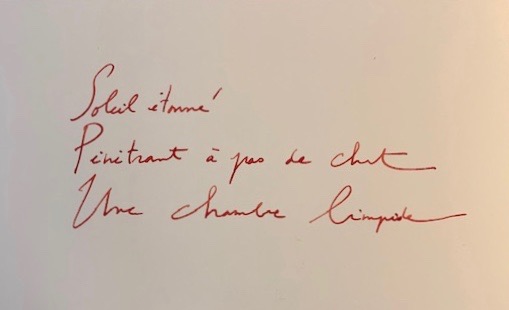 Soleil étonné
Pénétrant à pas de chat
Une chambre limpide